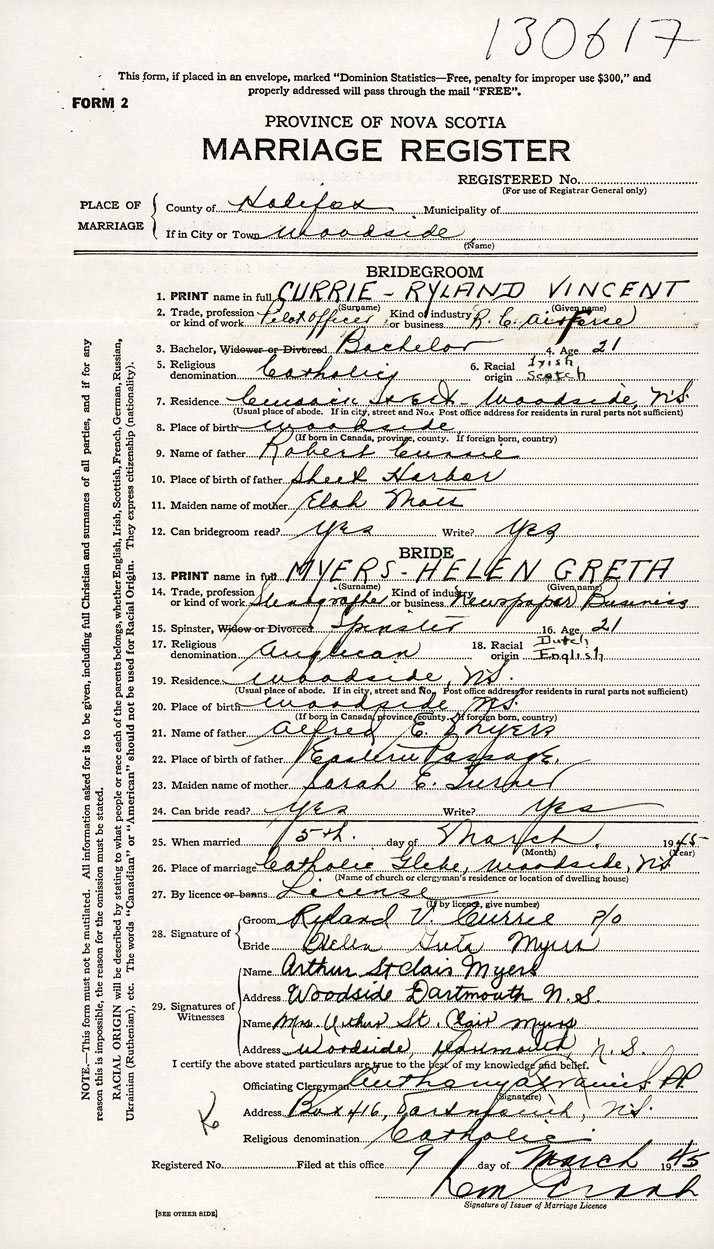 130617
This form, if placed in an envelope, marked "Dominion Statistics—Free, penalty for improper use $300," and
properly addressed will pass through the mail "FREE".
FORM 2
PROVINCE OF NOVA SCOTIA
MARRIAGE REGISTER
REGISTERED No.
(For use of Registrar General only)
PLACE OF MARRIAGE
County of Halifax Municipality of
If in City or Town Woodside
(Name)
BRIDEGROOM
1. PRINT name in full CURRIE - RYLAND VINCENT
(Surname) (Given name)
2. Trade, profession or kind of work Pilot Officer Kind of industry or business R. C. Airforce
3. Bachelor, Widower or Divorced Bachelor 4. Age 21
5. Religious denomination Catholic 6. Racial origin Irish Scotch
7. Residence Street - Woodside, N.S.
(Usual place of abode. If in city, street and No. Post office address for residents in rural parts not sufficient)
8. Place of birth Woodside
(If born in Canada, province, county. If foreign born, country)
9. Name of father Robert Currie
10. Place of birth of father Sheet Harbor
11. Maiden name of mother Mott
12. Can bridegroom read? Yes Write? Yes
BRIDE
13. PRINT name in full MYERS - HELEN GRETA
(Surname) (Given name)
14. Trade, profession or kind of work Stenographer Kind of industry or business Newspaper Business
15. Spinster, Widow or Divorced Spinster 16. Age 21
17. Religious denomination Anglican 18. Racial origin Dutch English
19. Residence Woodside, N.S.
(Usual place of abode. If in city, street and No. Post office address for residents in rural parts not sufficient)
20. Place of birth Woodside N.S.
(If born in Canada, province, county. If foreign born, country)
21. Name of father Alfred E. Myers
22. Place of birth of father Eastern Passage
23. Maiden name of mother Sarah E. Turner
24. Can bride read? Yes Write? Yes
25. When married 5th. day of March, 1945
(Month) (Year)
26. Place of marriage Catholic Glebe, Woodside, N.S.
(Name of church or clergyman's residence or location of dwelling house)
27. By licence or banns License
(If by licence, give number)
28. Signature of
Groom Ryland V. Currie P/O
Bride Helen Greta Myers
29. Signatures of Witnesses
Name Arthur St Clair Myers
Address Woodside Dartmouth N.S.
Name Mrs. Arthur St. Clair Myers
Address Woodside, Dartmouth, N.S.
I certify the above stated particulars are true to the best of my knowledge and belief.
Officiating Clergyman Anthony
(Signature)
Address Box 416, Dartmouth, N.S.
Religious denomination Catholic
Registered No. Filed at this office 9 day of March 1945
Signature of Issuer of Marriage Licence
[SEE OTHER SIDE]
NOTE.—This form must not be mutilated. All information asked for is to be given, including full Christian and surnames of all parties, and if for any
reason this is impossible, the reason for the omission must be stated.
RACIAL ORIGIN will be described by stating to what people or race each of the parents belongs, whether English, Irish, Scottish, French, German, Russian,
Ukrainian (Ruthenian), etc. The words "Canadian" or "American" should not be used for Racial Origin. They express citizenship (nationality).